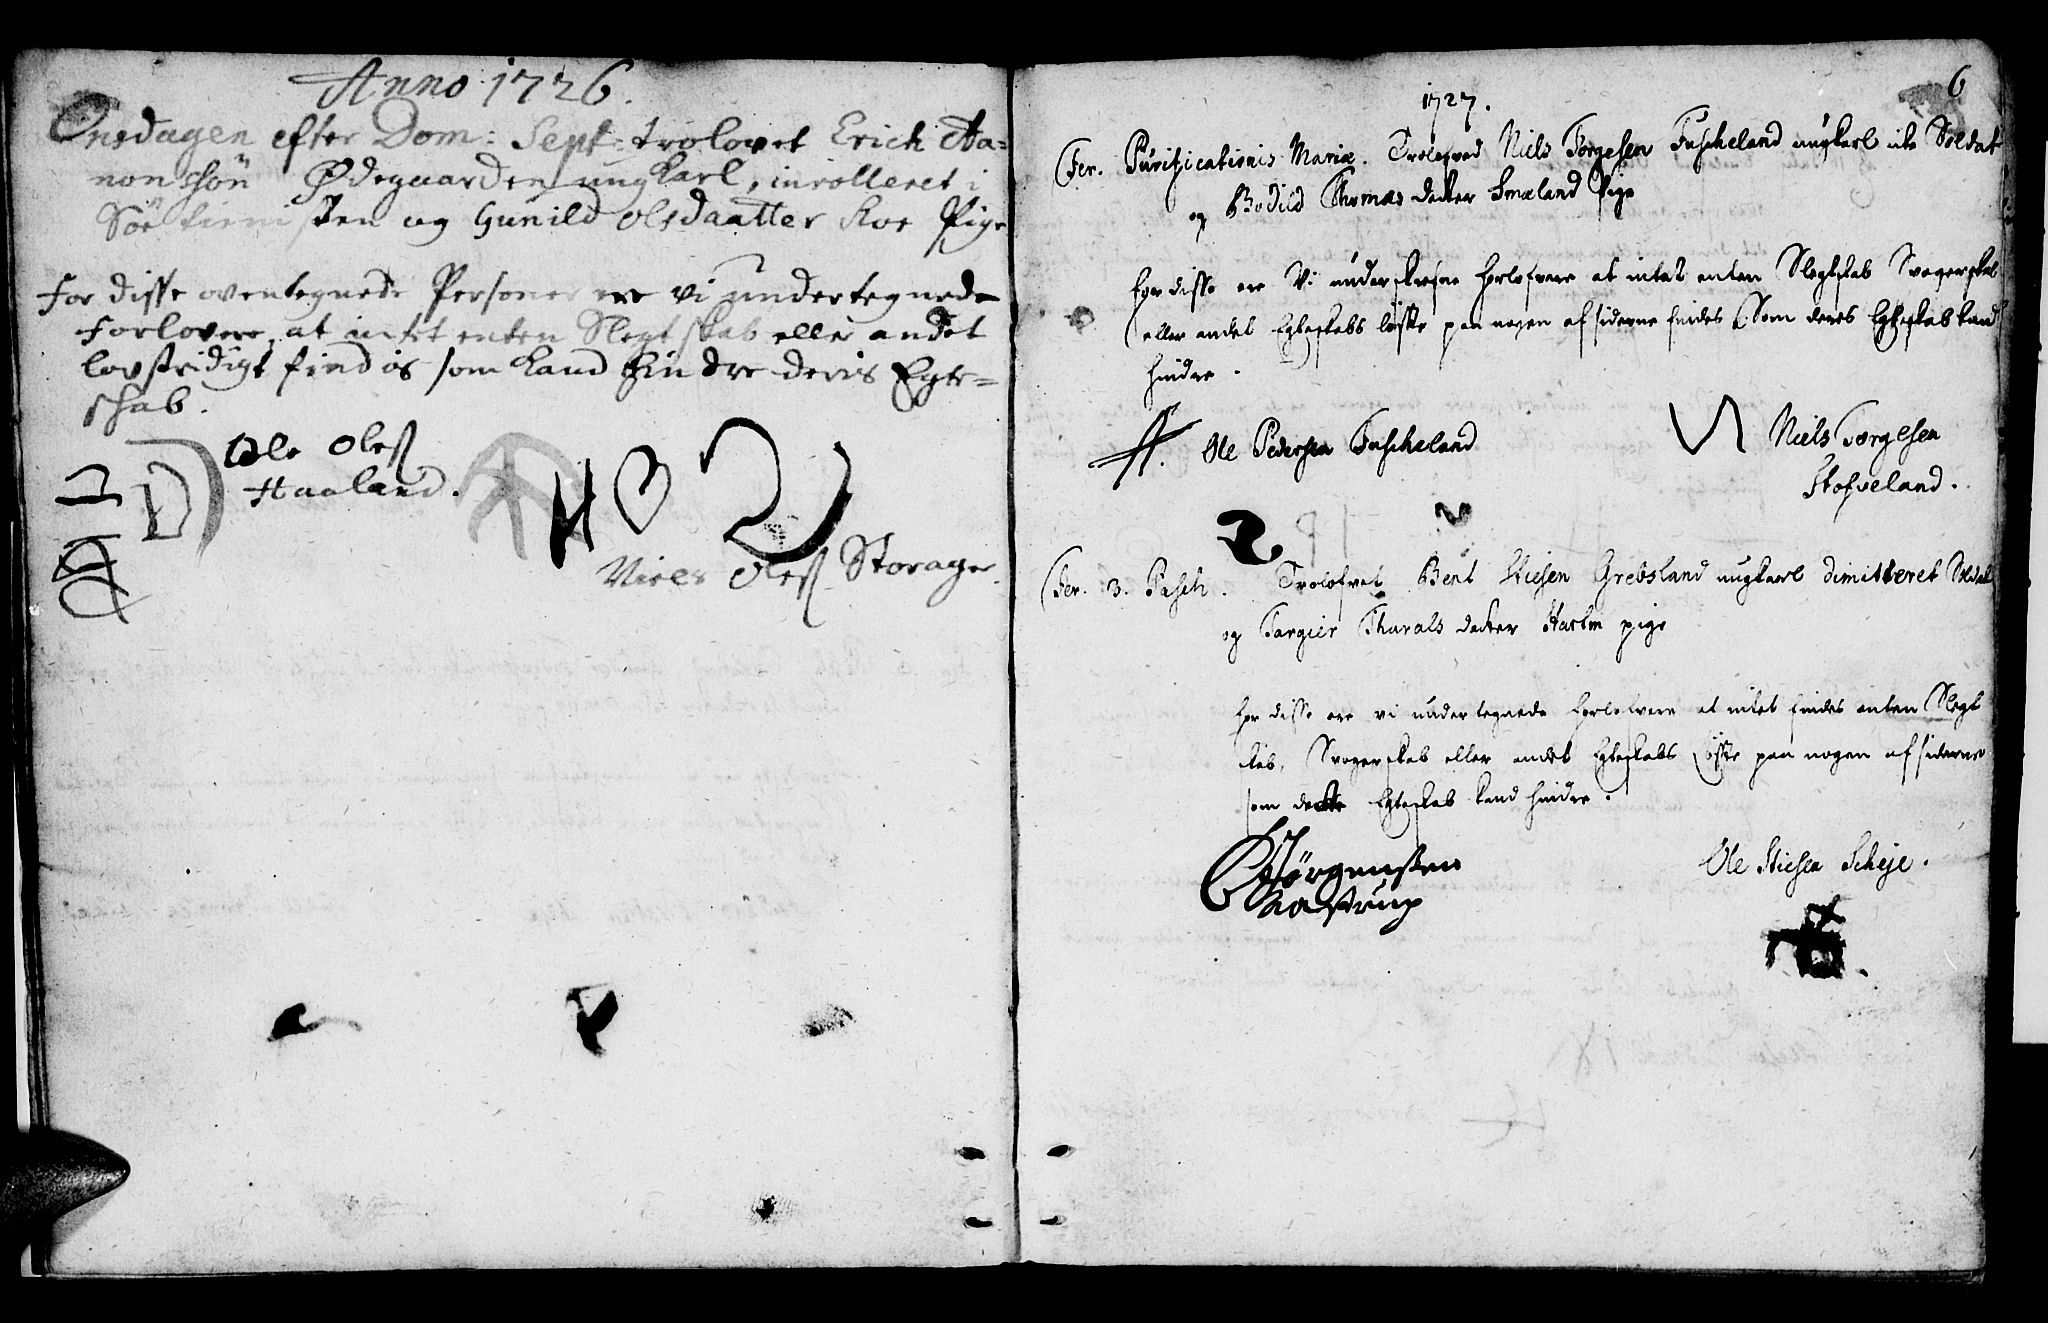 Anno 1726.
Onsdagen efter Dom: Sept: trolovet Erich Aa=
nonshön Ødegaarden ungkarl, inrolleret i
Söe tienisten og Gunild Olsdaatter Roe Pige
For disse oventegnede Personer ere vi undertegnede
Forlovere, at intet enten Slegtskab eller andet
lovstridigt findis som kand hindre deris Egte=
skab.
Ole Olesß
Haaland.
H B
Niels Olesß Storager
6
1727.
Fer. Purificationis Mariæ. Trolofved Niels Torgesen Fuscheland ungkarl iche Soldat
og Bodild Thomas datter Smeland Pige
For disse ere Vi underskrefne Forlofvere at intet enten Slegtskab Svogerskab
eller andet Egteskabs løfte paa nogen af siderne findes, Som deres Egteskab kand
hindre.
Ole Pedersen Fuscheland
Niels Torgesen
Stofveland.
Fer. 3. Pasch. Trolofvet Bent Stiesen Grebsland ungkarl dimitteret Soldat
og Targier Tharals datter pige
For disse ere vi undertegnede Forlofvere at intet findes enten Slegt
skab, Svogerskab eller andet Egteskabs løfte paa nogen af siderne
som dette Egteskab kand hindre.
Jörgensßen
Aastrup
Ole Stiesen Scheje.